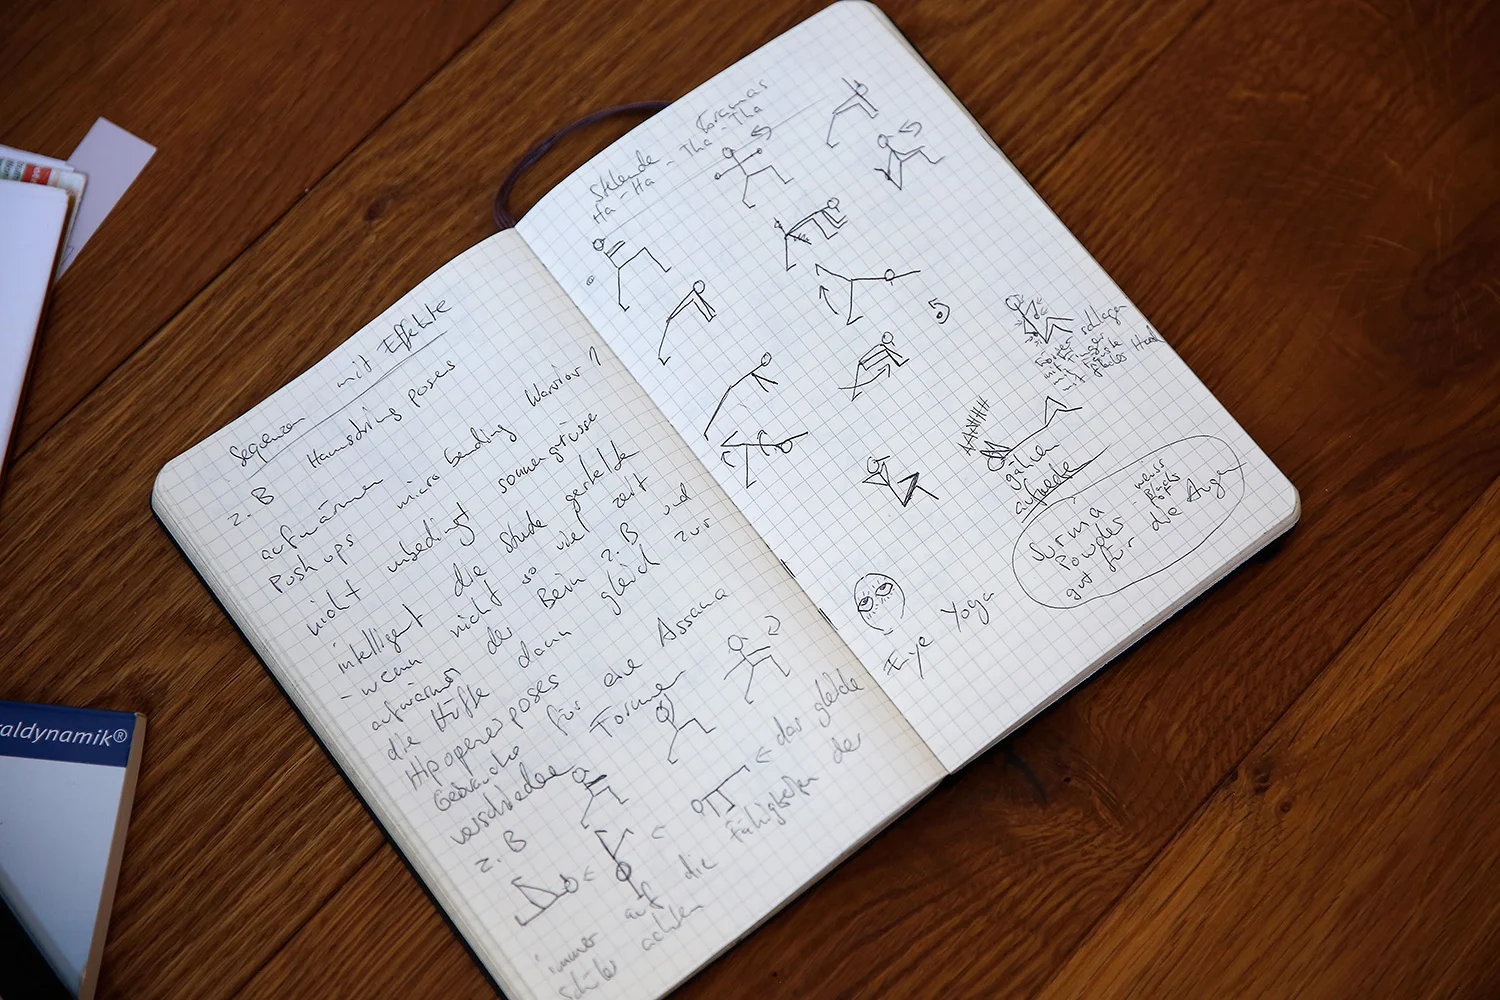 Sequenzen mit Effekte
z.B Hamstring poses
aufwärmen micro bending Warrior 1
Push ups
nicht unbedingt sonnengrüsse
intelligent die Stude gestalten
- wenn nicht so viel zeit
aufwärmen der Bein z.B und
die Hüfte dann gleich zur
Hipopener poses
Gebrauche für eine Assana
verschiedene Formen
z.B
< <
< das gleiche
immer auf die Fähigkeiten der
Schüler achten
Stehende
Ha-Ha - Tha-Tha
5
Körper schlagen
mit Finger
mit Fäuste
mit flacher Hand
AAAHHH
gähnen
aufwachen
Surma
Powder
weiss
Black
gut für die Augen
Eye Yoga
aldynamik®